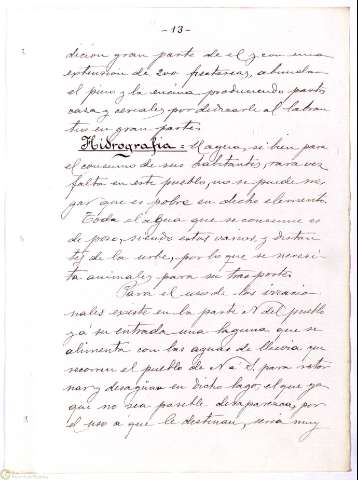 - 13 -
dición gran parte de él y con una
extensión de 200 hectareas, abundan
el pino y la encina produciendo pastos
caza y cereales, por dedicarle al labran
tio en gran parte.
Hidrografía = El agua, si bien para
el consumo de sus habitantes, rara vez
falta en este pueblo, no se puede ne-
gar que es pobre en dicho elemento.
Toda el agua que se consume es
de pozo, siendo estos varios y distan
tes de la urbe, por lo que se necesi-
ta animales para su trasporte.
Para el uso de los irracio
nales existe en la parte N del pueblo
y á su entrada una laguna que se
alimenta con las aguas de lluvia que
recorren el pueblo de N á S. para retor
nar y desaguan en dicho lago; el que ya
que no sea posible desaparezca, por
el uso á que le destinan, sería muy